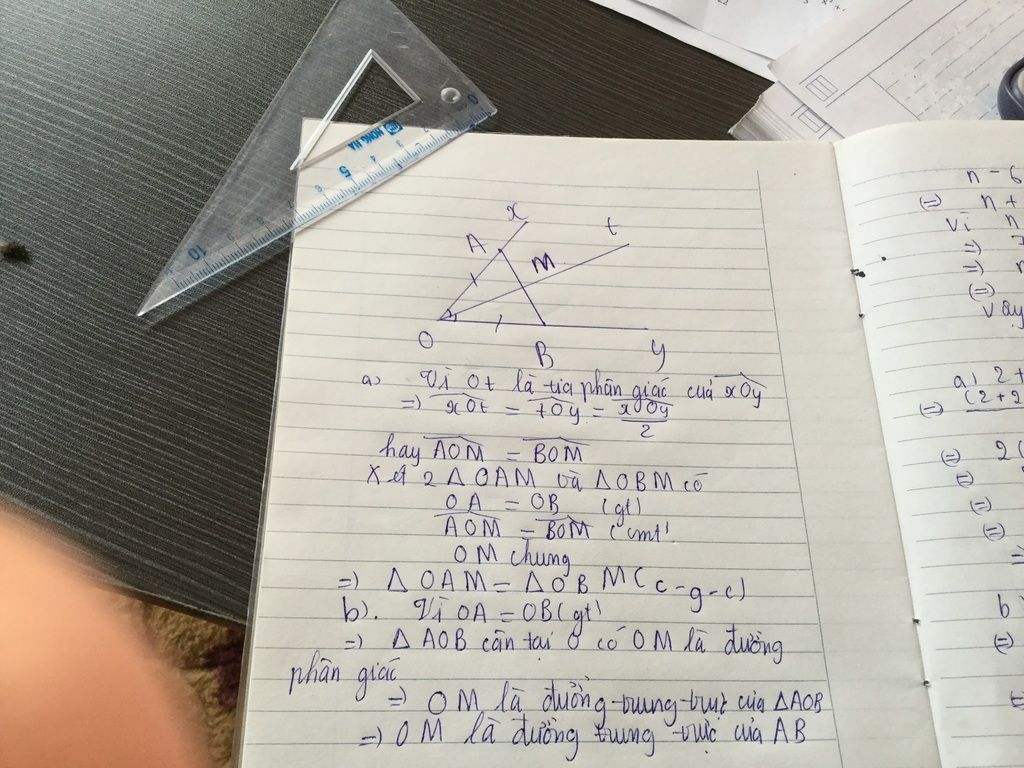 HONG HA
0
5
10
x
t
A
M
O
B
y
a) Vì Ot là tia phân giác của xOy
=) xOt = tOy = xOy
2
hay AOM = BOM
Xét 2 Δ OAM và Δ OBM có
OA = OB (gt)
AOM = BOM (cmt)
OM chung
=) Δ OAM = Δ OBM (c-g-c)
b). Vì OA = OB (gt)
=) Δ AOB cân tại O có OM là đường
phân giác
=) OM là đường trung trực của ΔAOB
=) OM là đường trung trực của AB
n - 6
(=) n +
vì n
=)
=)
(=)
vây
a) 2 +
(2+2
(=)
(=) 2(
(=)
(=)
(=)
=)
b)
(=)